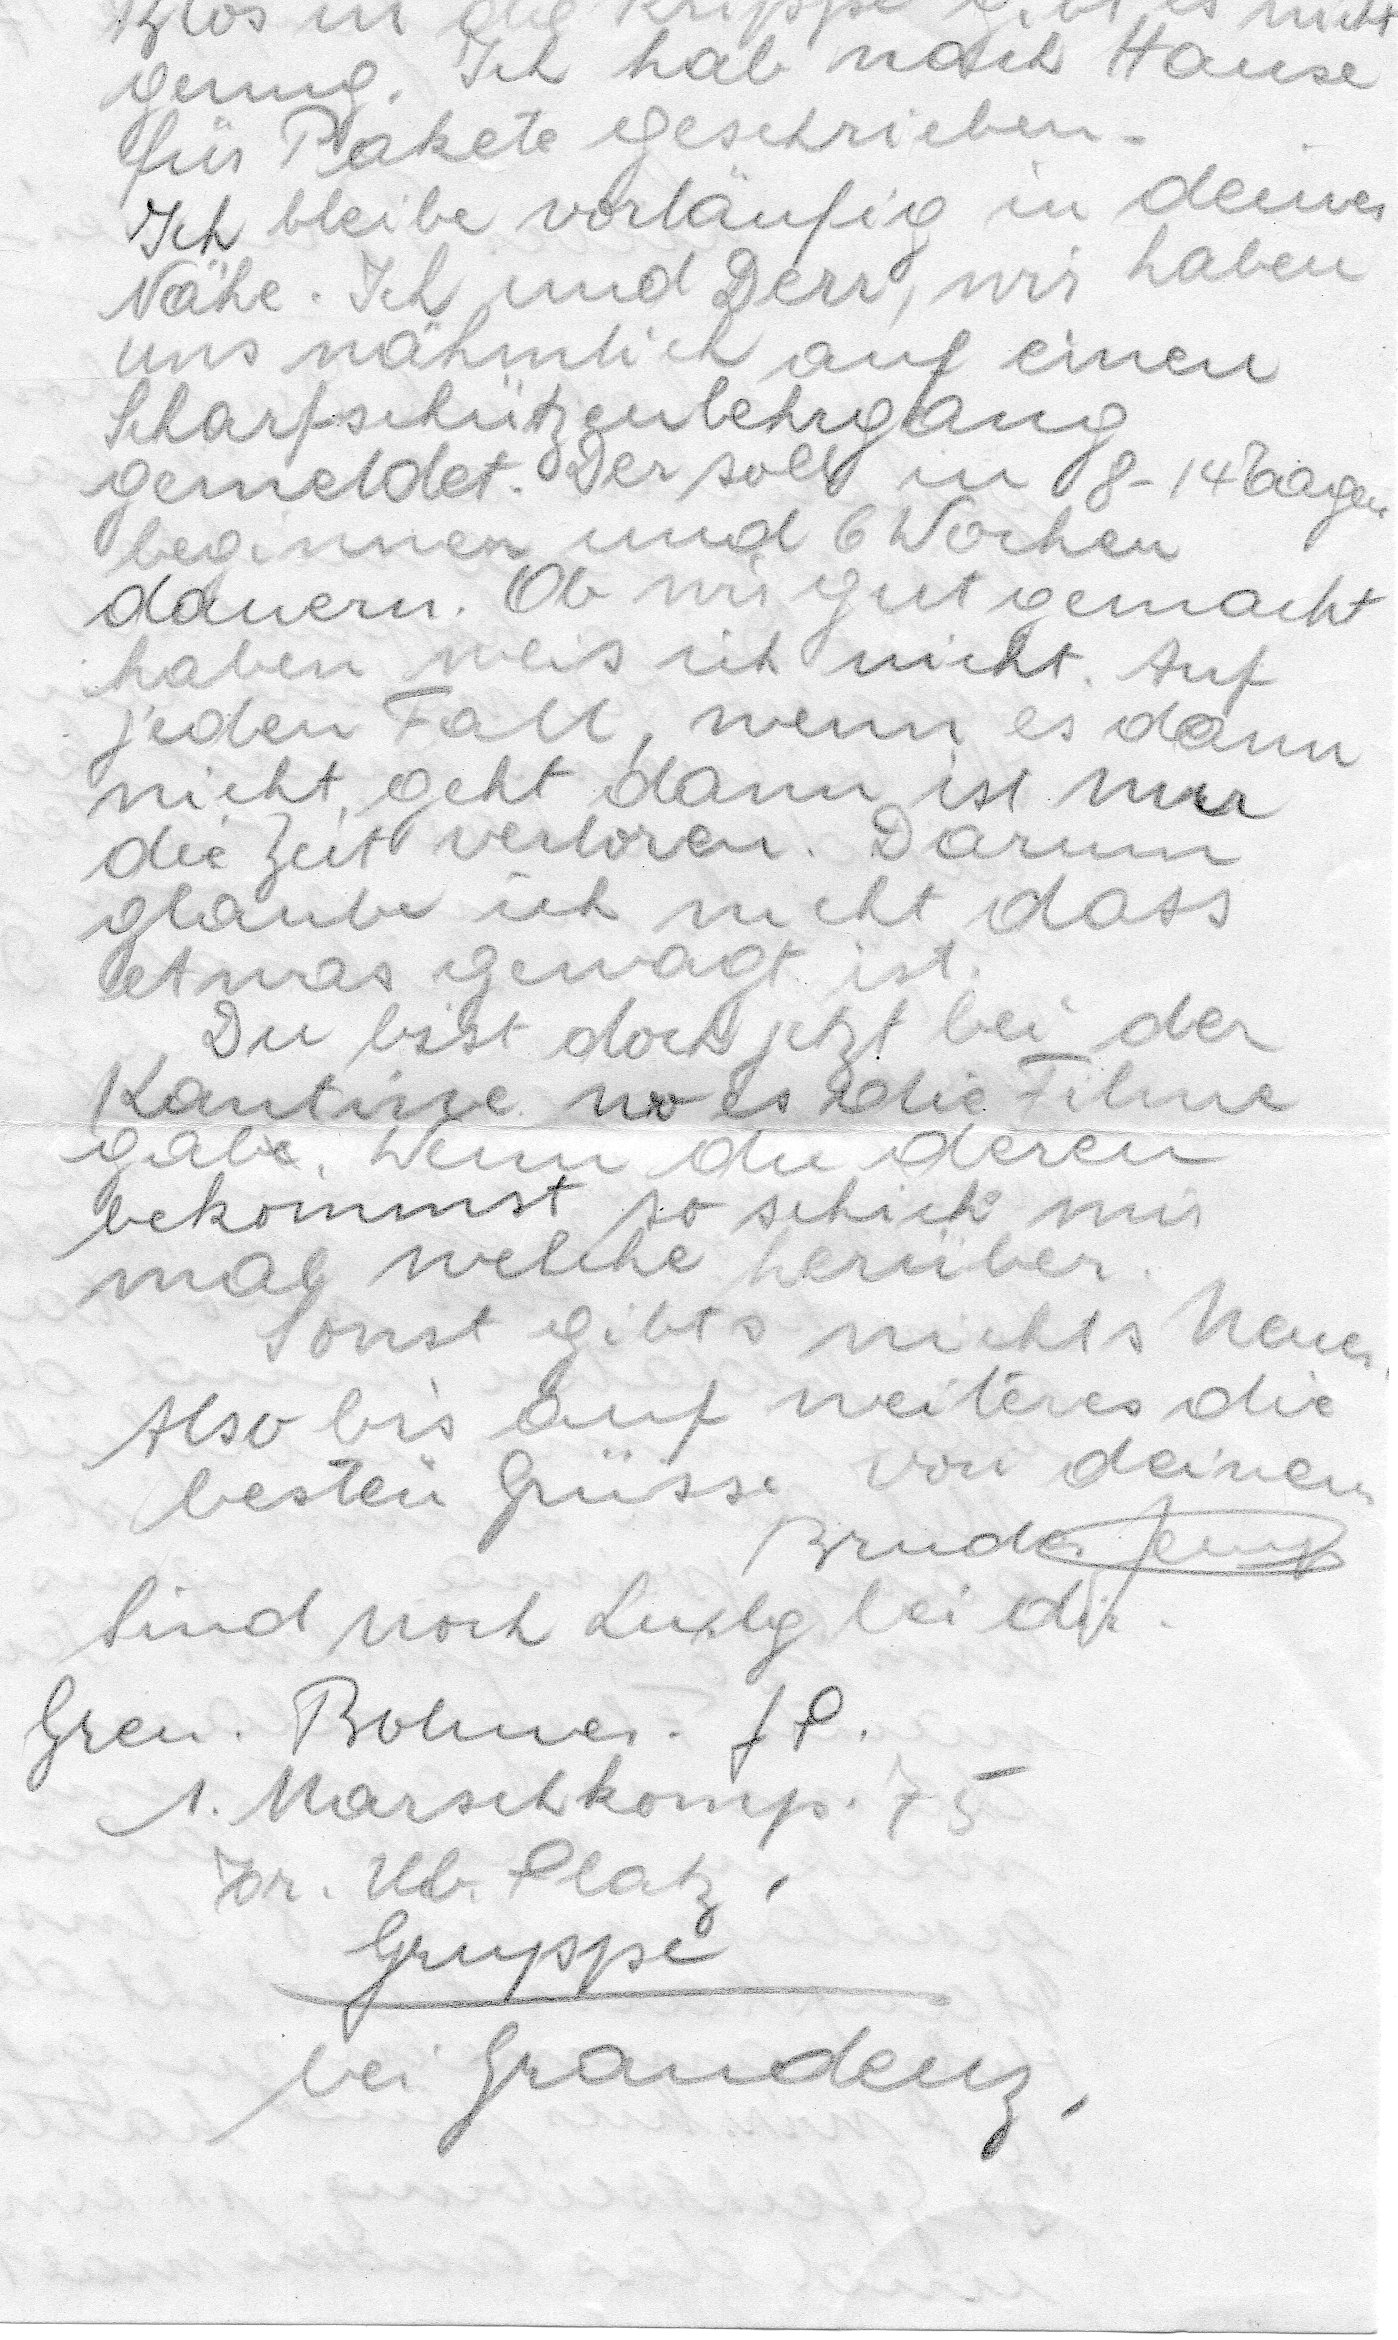 Blos in die Krippe gibt es nicht
genug. Ich hab nach Hause
für Pakete geschrieben.
Ich bleibe vorläufig in deiner
Nähe. Ich und Derr, wir haben
uns nähmlich auf einen
Scharfschützenlehrgang
gemeldet. Der soll in 8-14 Tagen
beginnen und 6 Wochen
dauern. Ob wir gut gemacht
haben weis ich nicht. Auf
jeden Fall, wenn es dann
nicht geht dann ist nur
die Zeit verloren. Darum
glaube ich nicht dass
etwas gewagt ist.
Du bist doch jetzt bei der
Kantine wo es die Filme
gabe. Wenn du deren
bekommst so schick mir
mal welche herüber.
Sonst gibts nichts Neues.
Also bis auf weiteres die
besten Grüsse von deinem
Bruder Jemp
Sind noch Luxbg bei dir.
Gren. Bohner. J P.
1. Marschkomp. 75
Tr. Üb. Platz,
Gruppe
bei Graudenz,